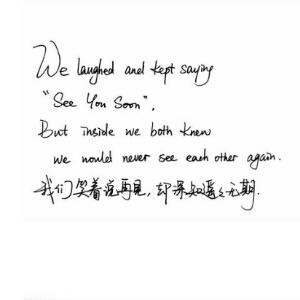 We laughed and kept saying
“See You Soon”,
But inside we both knew
we would never see each other again.
我们笑着说再见，却深知遥遥无期.